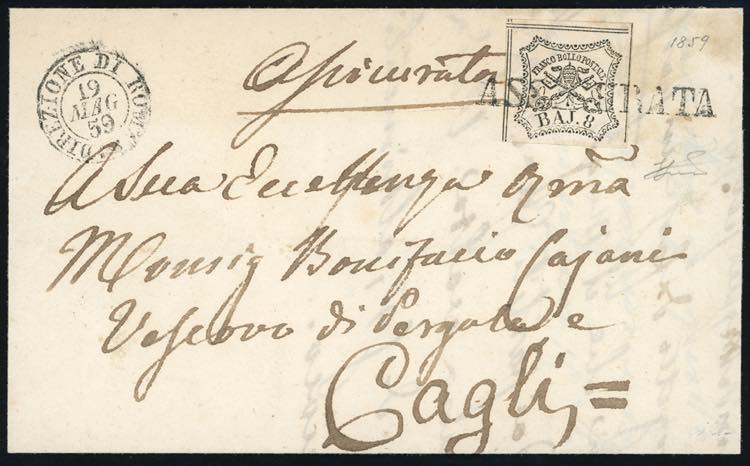 1859
DIREZIONE DI ROMA
19
MAG
59
Assicurata
FRANCO BOLLO POSTALE
BAJ. 8
ASSICURATA
A Sua Eccellenza Rma
Monsig Bonifacio Cajani
Vescovo di Pergola e
Cagli =